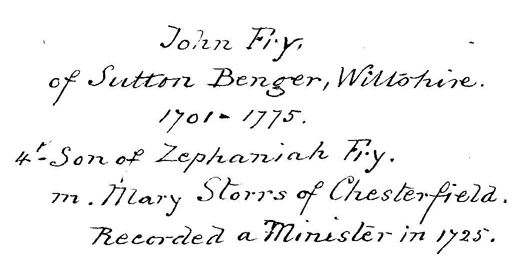 John Fry,
of Sutton Benger, Wiltshire.
1701 - 1775.
4t- Son of Zephaniah Fry.
m. Mary Storrs of Chesterfield.
Recorded a Minister in 1725.